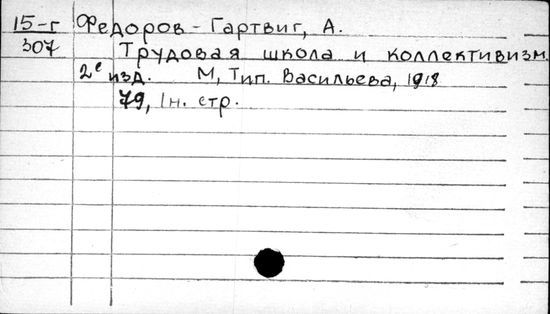 15-г Федоров - Гартвиг, А.
307 Трудовая школа и коллективизм.
2е изд. М, Тип. Васильева, 1918
79, 1н. стр.